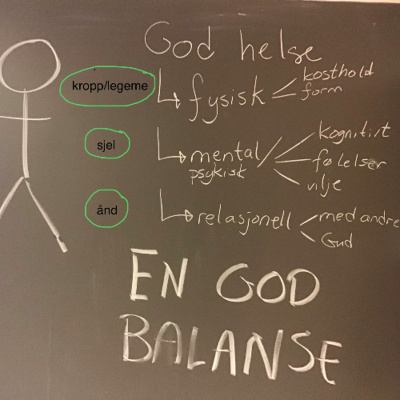 God helse
kropp/legeme
fysisk
kosthold
form
sjel
mental/
psykisk
kognitivt
følelser
vilje
ånd
relasjonell
med andre
Gud
EN GOD
BALANSE